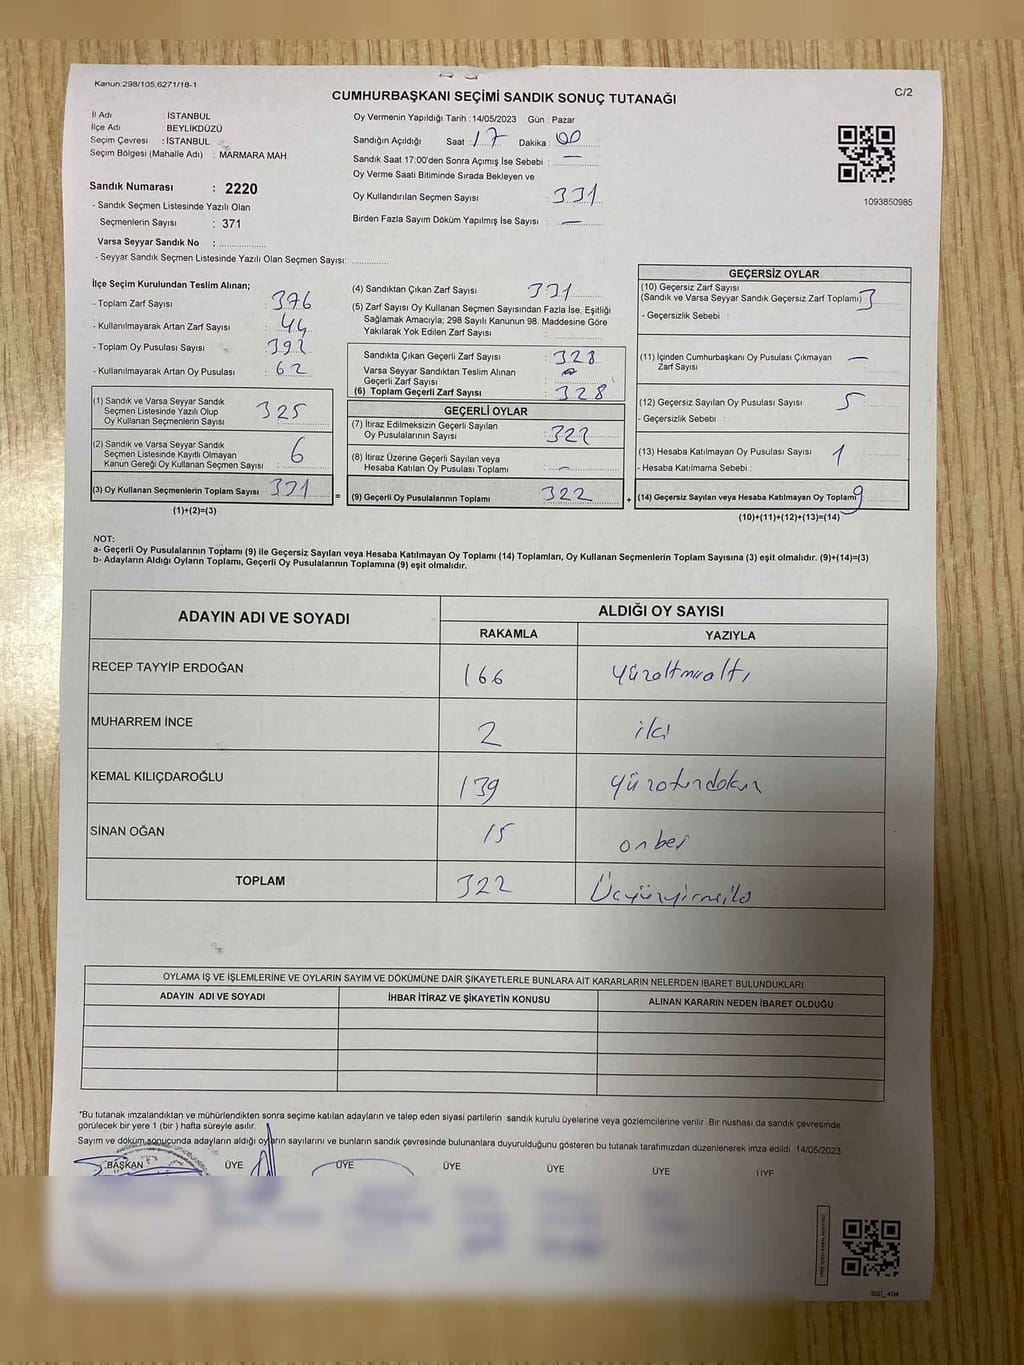 Kanun:298/105,6271/18-1
C/2
CUMHURBAŞKANI SEÇİMİ SANDIK SONUÇ TUTANAĞI
İl Adı : İSTANBUL
İlçe Adı : BEYLİKDÜZÜ
Seçim Çevresi : İSTANBUL
Seçim Bölgesi (Mahalle Adı) : MARMARA MAH.
Sandık Numarası : 2220
- Sandık Seçmen Listesinde Yazılı Olan
Seçmenlerin Sayısı : 371
Varsa Seyyar Sandık No :
- Seyyar Sandık Seçmen Listesinde Yazılı Olan Seçmen Sayısı:
Oy Vermenin Yapıldığı Tarih : 14/05/2023 Gün : Pazar
Sandığın Açıldığı Saat : 17 Dakika : 00
Sandık Saat 17:00'den Sonra Açımış İse Sebebi : —
Oy Verme Saati Bitiminde Sırada Bekleyen ve
Oy Kullandırılan Seçmen Sayısı : 331
Birden Fazla Sayım Döküm Yapılmış İse Sayısı : —
1093850985
İlçe Seçim Kurulundan Teslim Alınan;
- Toplam Zarf Sayısı : 376
- Kullanılmayarak Artan Zarf Sayısı : 44
- Toplam Oy Pusulası Sayısı : 392
- Kullanılmayarak Artan Oy Pusulası : 62
(1) Sandık ve Varsa Seyyar Sandık
Seçmen Listesinde Yazılı Olup
Oy Kullanan Seçmenlerin Sayısı : 325
(2) Sandık ve Varsa Seyyar Sandık
Seçmen Listesinde Kayıtlı Olmayan
Kanun Gereği Oy Kullanan Seçmen Sayısı : 6
(3) Oy Kullanan Seçmenlerin Toplam Sayısı : 331 =
(1)+(2)=(3)
(4) Sandıktan Çıkan Zarf Sayısı : 331
(5) Zarf Sayısı Oy Kullanan Seçmen Sayısından Fazla İse, Eşitliği
Sağlamak Amacıyla; 298 Sayılı Kanunun 98. Maddesine Göre
Yakılarak Yok Edilen Zarf Sayısı :
Sandıkta Çıkan Geçerli Zarf Sayısı : 328
Varsa Seyyar Sandıktan Teslim Alınan
Geçerli Zarf Sayısı :
(6) Toplam Geçerli Zarf Sayısı : 328
GEÇERLİ OYLAR
(7) İtiraz Edilmeksizin Geçerli Sayılan
Oy Pusulalarının Sayısı : 322
(8) İtiraz Üzerine Geçerli Sayılan veya
Hesaba Katılan Oy Pusulası Toplamı : —
(9) Geçerli Oy Pusulalarının Toplamı : 322 +
GEÇERSİZ OYLAR
(10) Geçersiz Zarf Sayısı
(Sandık ve Varsa Seyyar Sandık Geçersiz Zarf Toplamı) 3
- Geçersizlik Sebebi :
(11) İçinden Cumhurbaşkanı Oy Pusulası Çıkmayan
Zarf Sayısı : —
(12) Geçersiz Sayılan Oy Pusulası Sayısı : 5
- Geçersizlik Sebebi :
(13) Hesaba Katılmayan Oy Pusulası Sayısı : 1
- Hesaba Katılmama Sebebi :
(14) Geçersiz Sayılan veya Hesaba Katılmayan Oy Toplamı : 9
(10)+(11)+(12)+(13)=(14)
NOT:
a- Geçerli Oy Pusulalarının Toplamı (9) ile Geçersiz Sayılan veya Hesaba Katılmayan Oy Toplamı (14) Toplamları, Oy Kullanan Seçmenlerin Toplam Sayısına (3) eşit olmalıdır. (9)+(14)=(3)
b- Adayların Aldığı Oyların Toplamı, Geçerli Oy Pusulalarının Toplamına (9) eşit olmalıdır.
ADAYIN ADI VE SOYADI
ALDIĞI OY SAYISI
RAKAMLA YAZIYLA
RECEP TAYYİP ERDOĞAN 166 yüzaltmışaltı
MUHARREM İNCE 2 iki
KEMAL KILIÇDAROĞLU 139 yüzotuzdokuz
SİNAN OĞAN 15 onbeş
TOPLAM 322 Üçyüzyirmiiki
OYLAMA İŞ VE İŞLEMLERİNE VE OYLARIN SAYIM VE DÖKÜMÜNE DAİR ŞİKAYETLERLE BUNLARA AİT KARARLARIN NELERDEN İBARET BULUNDUKLARI
ADAYIN ADI VE SOYADI İHBAR İTİRAZ VE ŞİKAYETİN KONUSU ALINAN KARARIN NEDEN İBARET OLDUĞU
*Bu tutanak imzalandıktan ve mühürlendikten sonra seçime katılan adayların ve talep eden siyasi partilerin sandık kurulu üyelerine veya gözlemcilerine verilir. Bir nüshası da sandık çevresinde
görülecek bir yere 1 (bir) hafta süreyle asılır.
Sayım ve döküm sonucunda adayların aldığı oyların sayılarını ve bunların sandık çevresinde bulunanlara duyurulduğunu gösteren bu tutanak tarafımızdan düzenlenerek imza edildi. 14/05/2023
BAŞKAN ÜYE ÜYE ÜYE ÜYE ÜYE ÜYE
SSİ_404